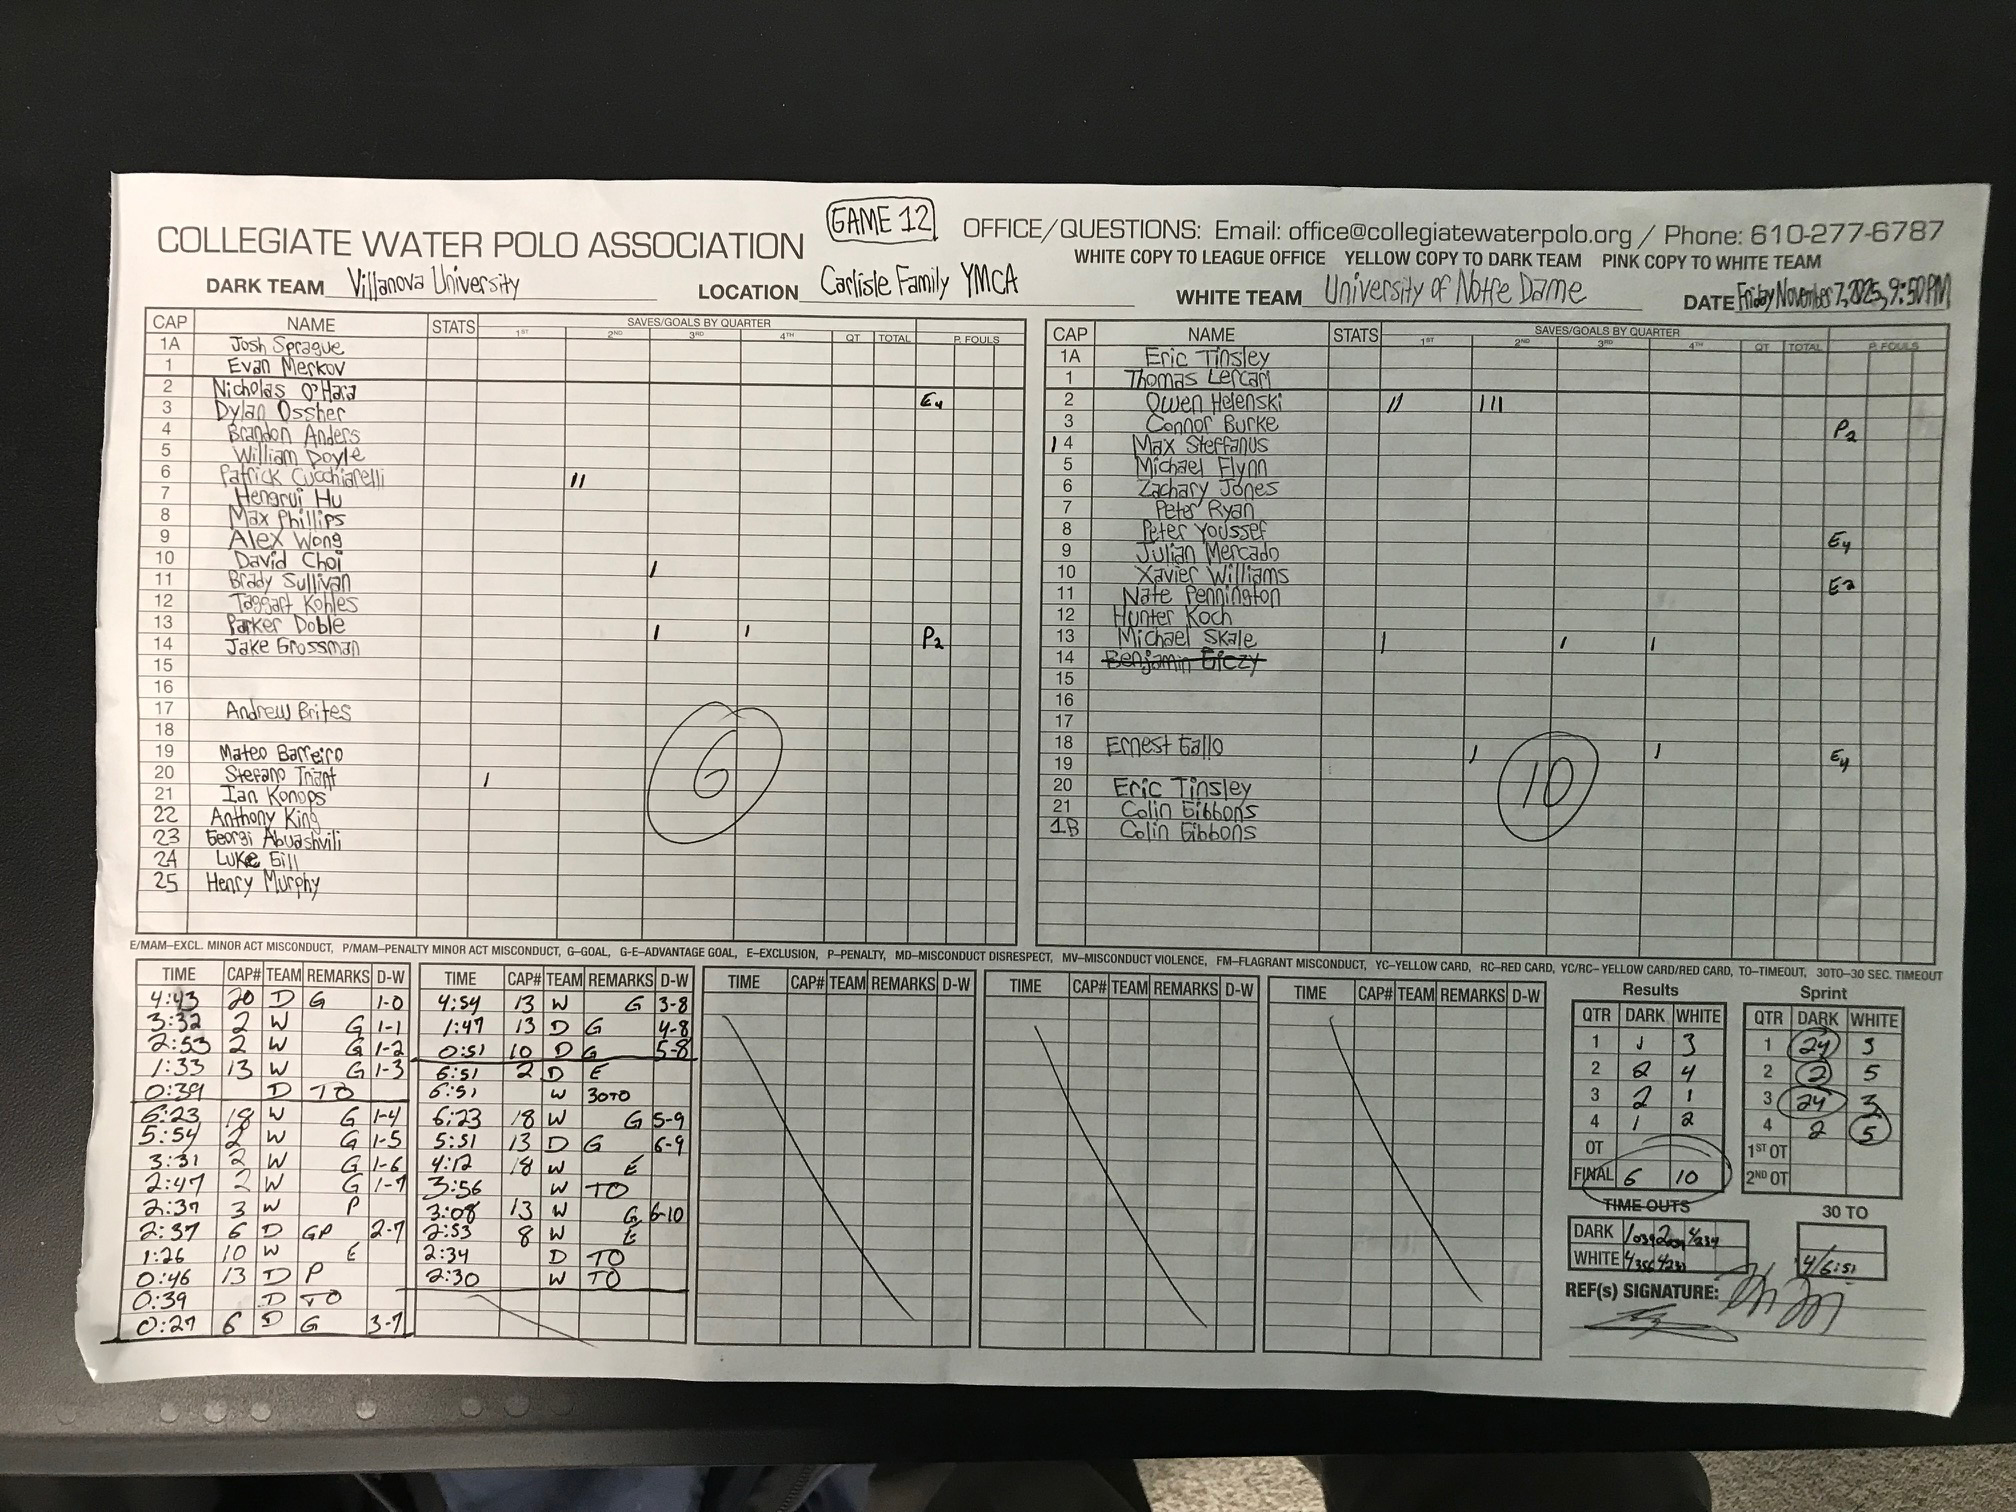 GAME 12
COLLEGIATE WATER POLO ASSOCIATION
OFFICE/QUESTIONS: Email: office@collegiatewaterpolo.org / Phone: 610-277-6787
WHITE COPY TO LEAGUE OFFICE YELLOW COPY TO DARK TEAM PINK COPY TO WHITE TEAM
DARK TEAM Villanova University LOCATION Carlisle Family YMCA WHITE TEAM University of Notre Dame DATE Friday November 7, 2025, 9:50 PM
CAP NAME STATS SAVES/GOALS BY QUARTER
1ST 2ND 3RD 4TH QT TOTAL P. FOULS
1A Josh Sprague
1 Evan Merkov
2 Nicholas O'Hara E4
3 Dylan Ossher
4 Brandon Anders
5 William Doyle
6 Patrick Cucchiarelli II
7 Hengrui Hu
8 Max Phillips
9 Alex Wong
10 David Choi I
11 Brady Sullivan
12 Taggart Kohles
13 Parker Doble I I P2
14 Jake Grossman
15
16
17 Andrew Brites
18
19 Mateo Barreiro
20 Stefano Triant I
21 Ian Konops
22 Anthony King
23 Georgi Abuashvili
24 Luke Gill
25 Henry Murphy
6
CAP NAME STATS SAVES/GOALS BY QUARTER
1ST 2ND 3RD 4TH QT TOTAL P. FOULS
1A Eric Tinsley
1 Thomas Lercari
2 Owen Helenski II III
3 Connor Burke P2
14 Max Steffanus
5 Michael Flynn
6 Zachary Jones
7 Peter Ryan
8 Peter Youssef E4
9 Julian Mercado
10 Xavier Williams E2
11 Nate Pennington
12 Hunter Koch
13 Michael Skale I I I
14 Benjamin Giczy
15
16
17
18 Ernest Gallo I I E4
19
20 Eric Tinsley
21 Colin Gibbons
1B Colin Gibbons
10
E/MAM–EXCL. MINOR ACT MISCONDUCT, P/MAM–PENALTY MINOR ACT MISCONDUCT, G–GOAL, G-E–ADVANTAGE GOAL, E–EXCLUSION, P–PENALTY, MD–MISCONDUCT DISRESPECT, MV–MISCONDUCT VIOLENCE, FM–FLAGRANT MISCONDUCT, YC–YELLOW CARD, RC–RED CARD, YC/RC– YELLOW CARD/RED CARD, TO–TIMEOUT, 30TO–30 SEC. TIMEOUT
TIME CAP# TEAM REMARKS D-W
4:43 20 D G 1-0
3:32 2 W G 1-1
2:53 2 W G 1-2
1:33 13 W G 1-3
0:39 D TO
6:23 18 W G 1-4
5:54 2 W G 1-5
3:31 2 W G 1-6
2:47 2 W G 1-7
2:37 3 W P
2:37 6 D GP 2-7
1:26 10 W E
0:46 13 D P
0:39 D TO
0:27 6 D G 3-7
TIME CAP# TEAM REMARKS D-W
4:54 13 W G 3-8
1:47 13 D G 4-8
0:51 10 D G 5-8
6:51 2 D E
6:51 W 30TO
6:23 18 W G 5-9
5:51 13 D G 6-9
4:12 18 W E
3:56 W TO
3:08 13 W G 6-10
2:53 8 W E
2:34 D TO
2:30 W TO
TIME CAP# TEAM REMARKS D-W
TIME CAP# TEAM REMARKS D-W
TIME CAP# TEAM REMARKS D-W
Results
QTR DARK WHITE
1 1 3
2 2 4
3 2 1
4 1 2
OT
FINAL 6 10
Sprint
QTR DARK WHITE
1 24 3
2 2 5
3 24 3
4 2 5
1ST OT
2ND OT
TIME OUTS
DARK 1/039 2/039 4/234
WHITE 4/356 4/230
30 TO
4/6:51
REF(s) SIGNATURE: